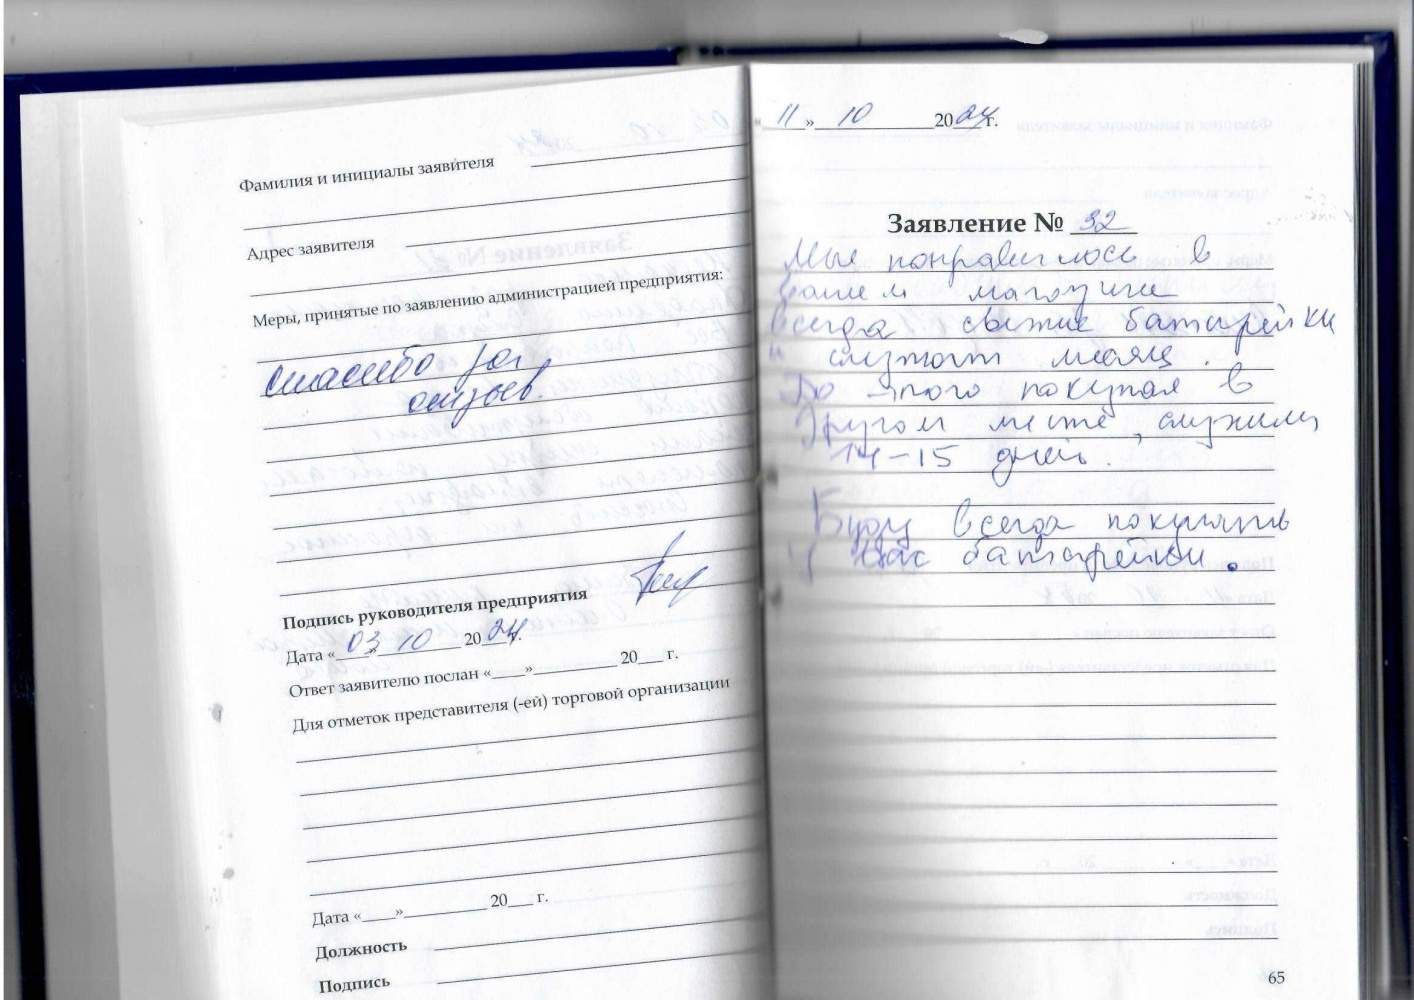 Фамилия и инициалы заявителя
Адрес заявителя
Меры, принятые по заявлению администрацией предприятия:
Спасибо за
отзыв.
Подпись руководителя предприятия
Дата «03» 10 2024 г.
Ответ заявителю послан «____»__________ 20___ г.
Для отметок представителя (-ей) торговой организации
Дата «____»__________ 20___ г.
Должность
Подпись
«11» 10 2024 г.
Заявление № 32
Мне понравилось в
вашем магазине
всегда свежие батарейки
и служат месяц.
До этого покупал в
другом месте, служили
14-15 дней.
Буду всегда покупать
у Вас батарейки.
65